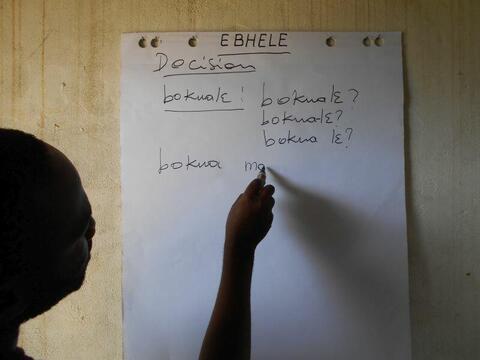 EBHELE
Decision
bokwalɛ : bokwalɛ?
bokwa-lɛ?
bokwa lɛ?
bokwa ma